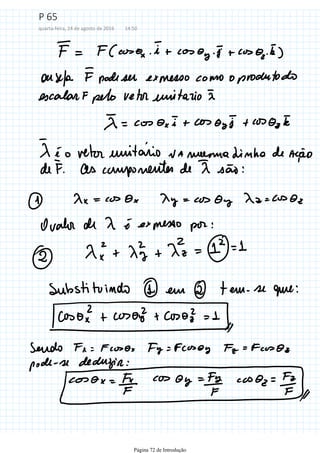 P 65
quarta-feira, 24 de agosto de 2016 14:50
F̅ = F(cosθx . i̅ + cosθy . j̅ + cosθz . k̅)
ou seja F̅ pode ser expresso como o produto do
escalar F pelo vetor unitario λ̅
λ̅ = cosθx i̅ + cosθy j̅ + cosθz k̅
λ̅ é o vetor unitário na mesma linha de ação
de F̅. Os componentes de λ̅ são:
① λx = cosθx λy = cosθy λz = cosθz
O valor de λ é expresso por:
② λx² + λy² + λz² = 1² = 1
Substituindo ① em ② tem-se que:
cosθx² + cosθy² + cosθz² = 1
Sendo Fx = F cosθx Fy = F cosθy Fz = F cosθz
pode-se deduzir:
cosθx = Fx/F cosθy = Fy/F cosθz = Fz/F
Página 72 de Introdução